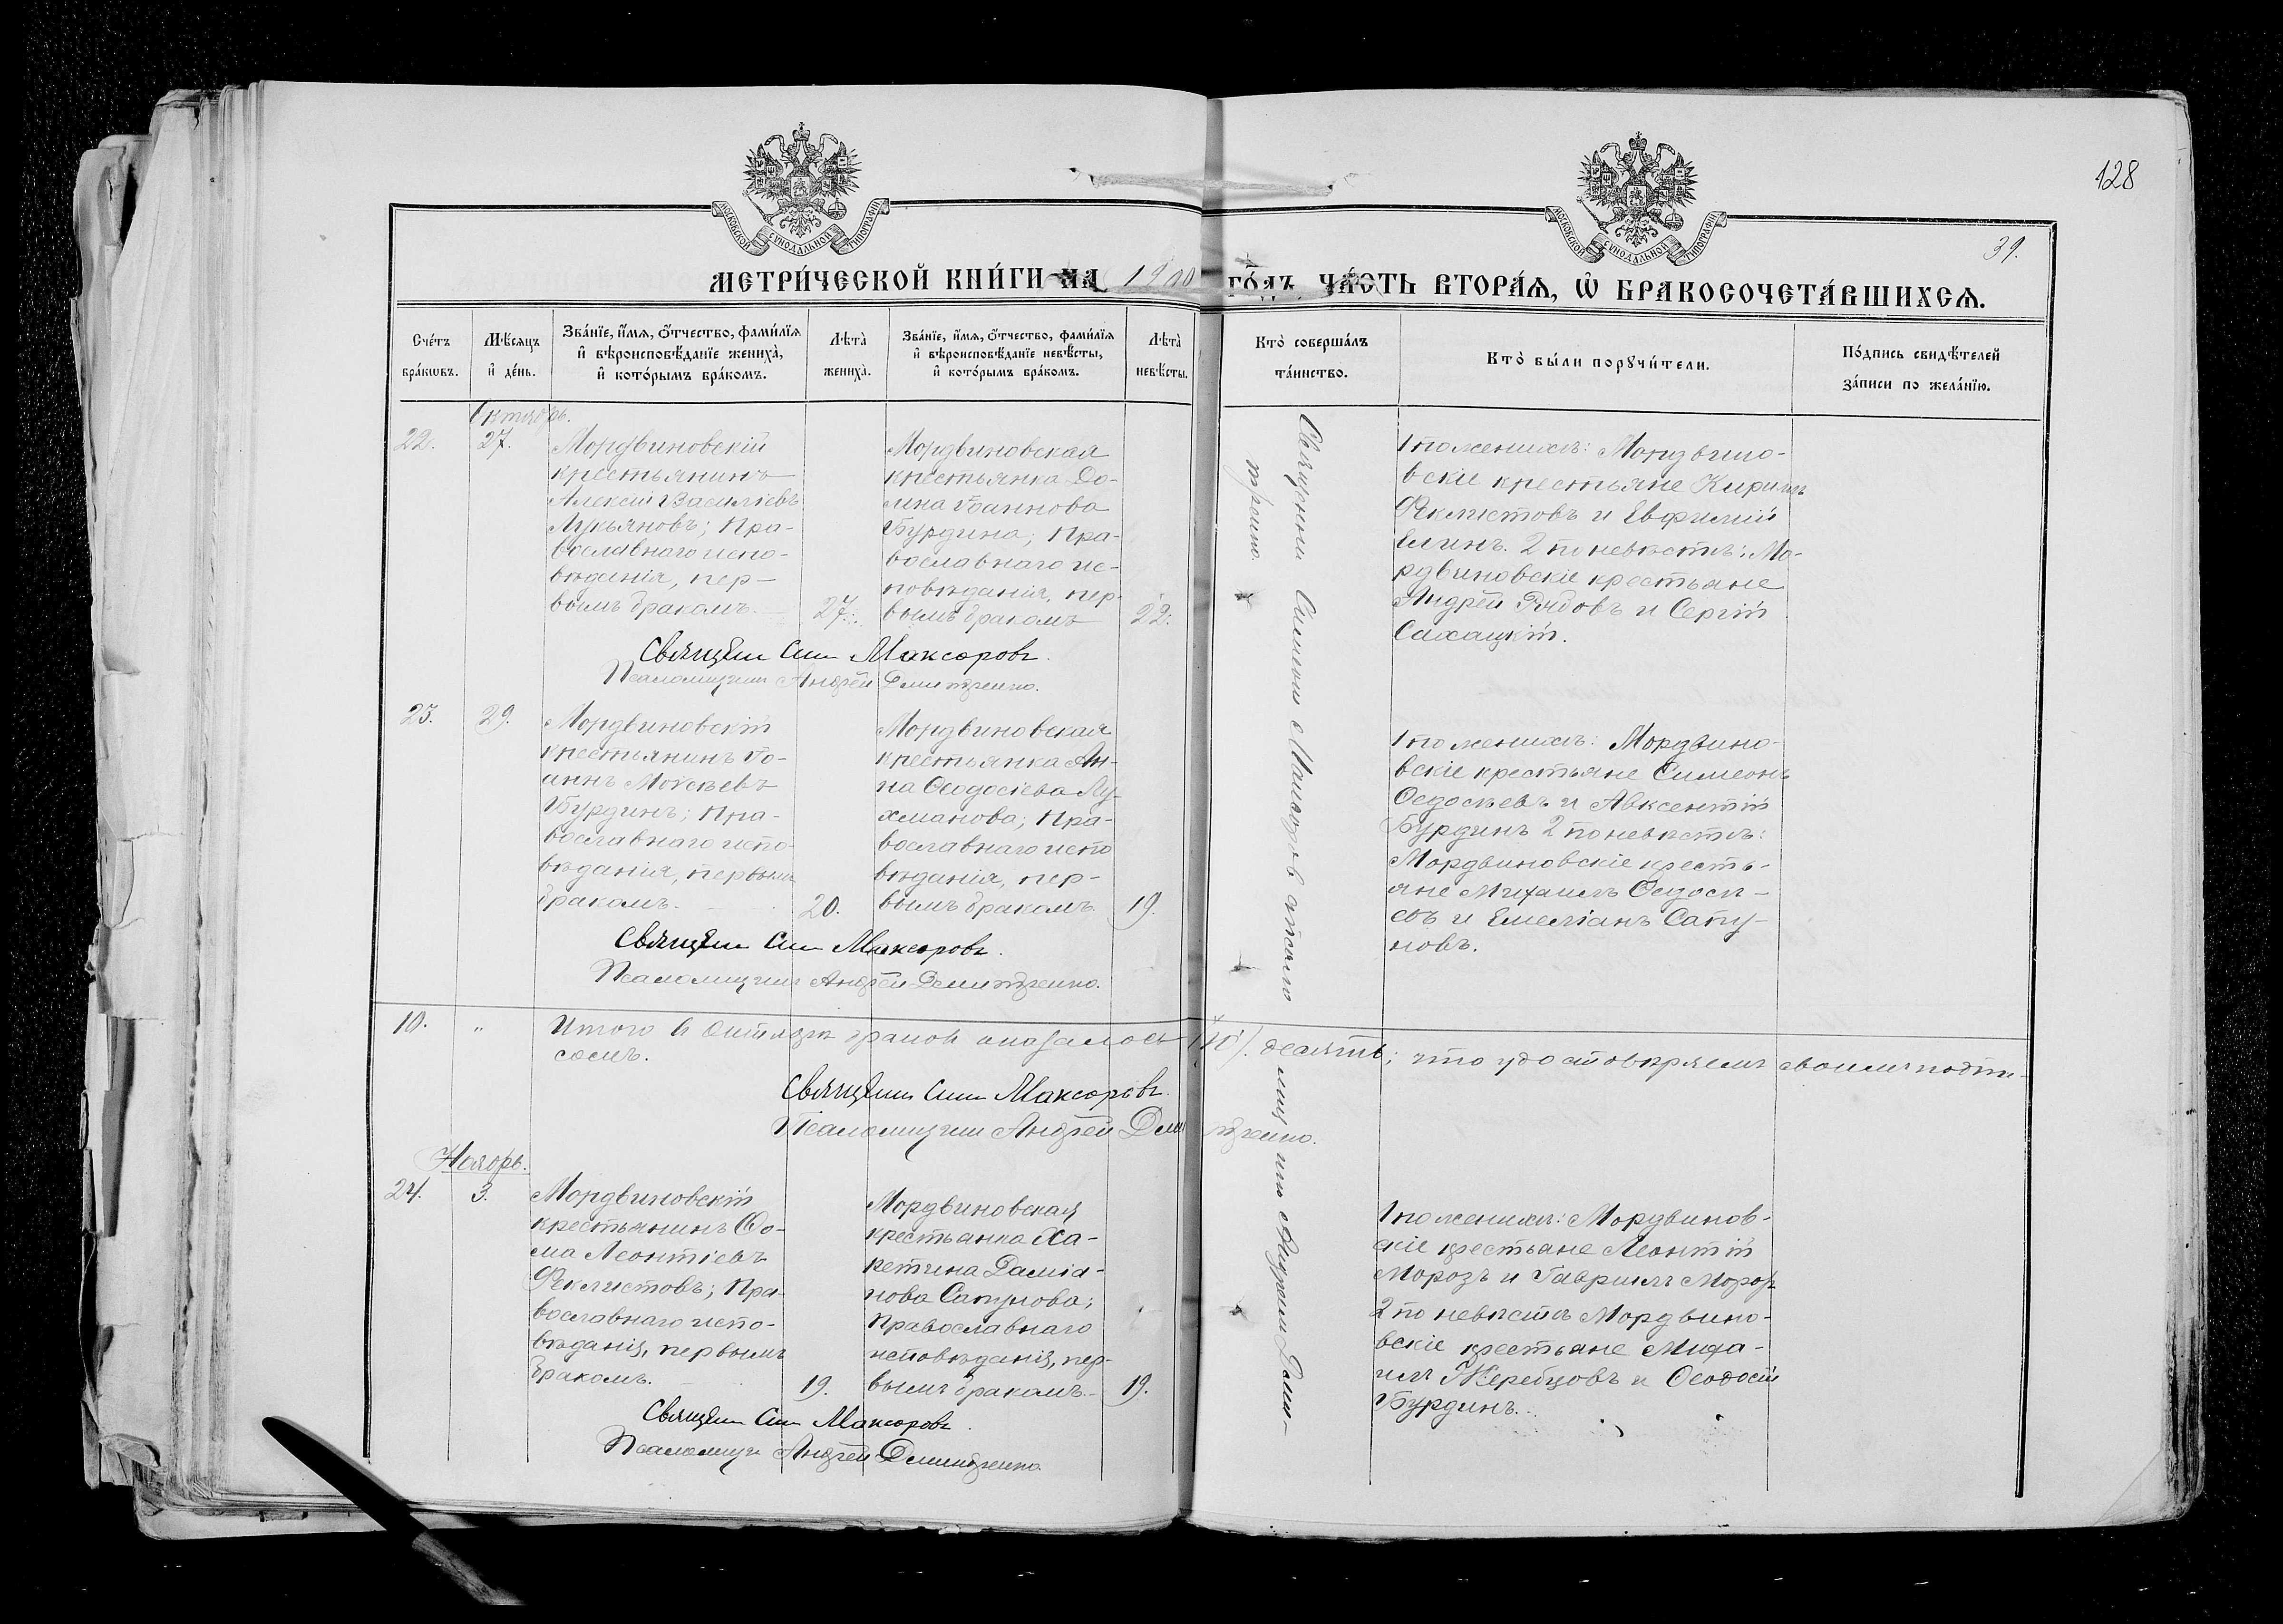 128
39.
МОСКОВСКОЙ СУНОДАЛЬНОЙ ТИПОГРАФІИ
МОСКОВСКОЙ СУНОДАЛЬНОЙ ТИПОГРАФІИ
МЕТРИ́ЧЕСКОЙ КНИ́ГИ НА 1900 ГО́ДЪ, ЧА́СТЬ ВТОРА́Ѧ, Ѡ҆ БРАКОСОЧЕТА́ВШИХСѦ.
Сче́тъ бра́кѡвъ.
Мѣ́сѧцъ и҆ де́нь.
Зва́нїе, и҆́мѧ, ѻ҆́тчество, фамилїѧ и҆ вѣроисповѣ́данїе жениха̀, и҆ кото́рымъ бра́комъ.
Лѣта̀ жениха̀.
Зва́нїе, и҆́мѧ, ѻ҆́тчество, фамилїѧ и҆ вѣроисповѣ́данїе невѣ́сты, и҆ кото́рымъ бра́комъ.
Лѣта̀ невѣ́сты.
Кто̀ соверша́лъ та́инство.
Кто̀ бы́ли порꙋчи́тели.
По́дпись свидѣ́телей за́писи по жела́нїю.
Октябрь.
22.
27.
Мордвиновскій
крестьянинъ
Алексій Василіевъ
Лукьяновъ; Пра-
вославнаго испо-
вѣданія, пер-
вымъ бракомъ.
27.
Мордвиновская
крестьянка До-
мна Іоаннова
Бурдина; Пра-
вославнаго ис-
повѣданія, пер-
вымъ бракомъ
22.
1 по женихѣ: Мордвино-
вскіе крестьяне Кириллъ
Феклистовъ и Евфимій
2 по невѣстѣ: Мо-
рдвиновскіе крестьяне
Андрей Рябовъ и Сергій
Сахацкій.
Священн Сим Максоровъ.
Псаломщикъ Андрей Демитренко.
23.
29.
Мордвиновскій
крестьянинъ Іо-
аннъ Моѵсеевъ
Бурдинъ; Пра-
вославнаго испо-
вѣданія, первымъ
бракомъ.
20.
Мордвиновская
крестьянка Ан-
на Ѳеодосіева Лу-
хманова; Пра-
вославнаго испо
вѣданія, пер-
вымъ бракомъ.
19.
1 по женихѣ: Мордвино-
вскіе крестьяне Симеонъ
Ѳедосѣевъ и Авксентій
Бурдинъ 2 по невѣстѣ:
Мордвиновскіе кресть-
яне Михаилъ Ѳедосѣ-
евъ и Емеліанъ Сапу-
новъ.
Священн Сим Максоровъ.
Псаломщикъ Андрей Демитренко.
10.
"
Итого въ Октябрѣ браковъ оказалось /10/. десять; что удостовѣряемъ своимъ подпи-
сомъ.
Священн Сим Максоровъ.
Псаломщикъ Андрей Демитренко.
Ноябрь.
24.
3.
Мордвиновскій
крестьянинъ Ѳо-
ма Леонтіевъ
Феклистовъ; Пра-
вославнаго испо-
вѣданія, первымъ
бракомъ.
19.
Мордвиновская
крестьянка Ха-
ретина Даміа-
нова Сапунова;
Православнаго
исповѣданія, пер-
вымъ бракомъ.
19.
1 по женихѣ: Мордвинов-
скіе крестьяне Леонтій
Морозъ и Гавріилъ Морозъ
2 по невѣстѣ Мордвино-
вскіе крестьяне Миха-
илъ Жеребцовъ и Ѳеодосій
Бурдинъ.
Священн Сим Максоровъ.
Псаломщикъ Андрей Демитренко
Священникъ Симеон Максоров с псаломщикомъ Андреем Деми-
тренко.